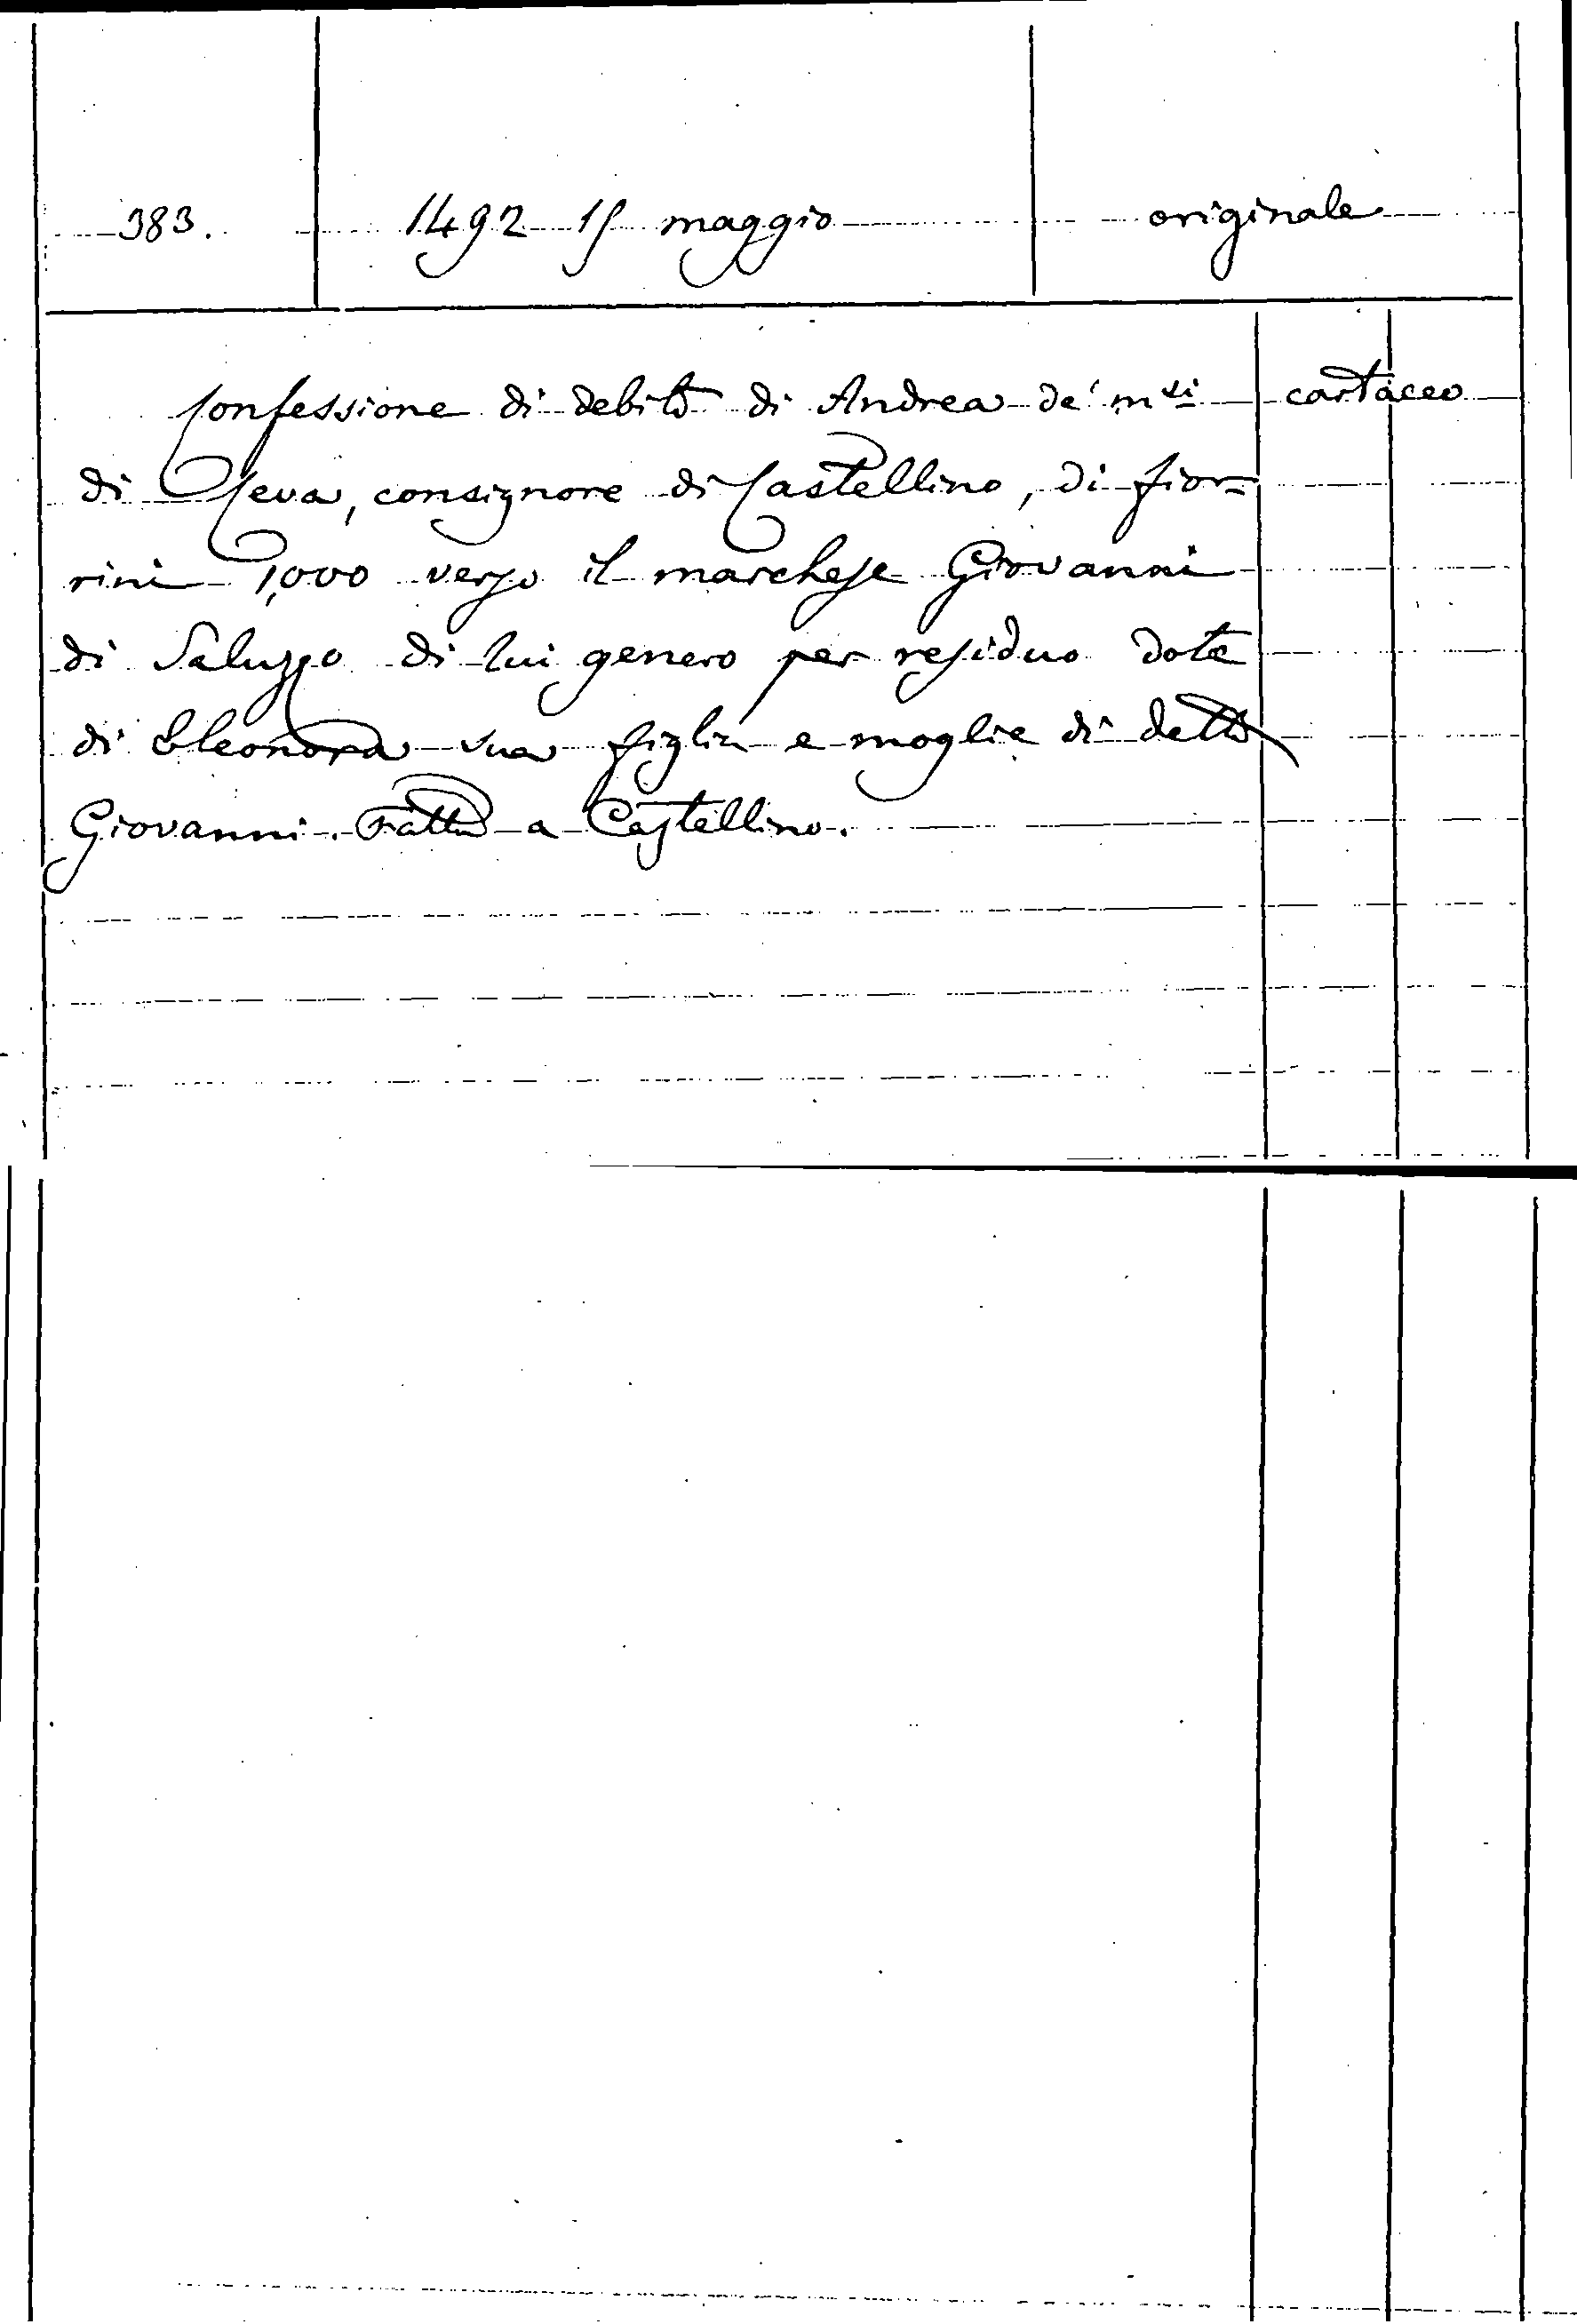 383. 1492 15 maggio originale
Confessione di debito di Andrea de' m.si cartaceo
di Ceva, consignore di Castellino, di fior=
rini 1,000 verso il marchese Giovanni
di Saluzzo di lui genero per residuo dote
di Eleonora sua figlia e moglie di detto
Giovanni. Fatta a Castellino.